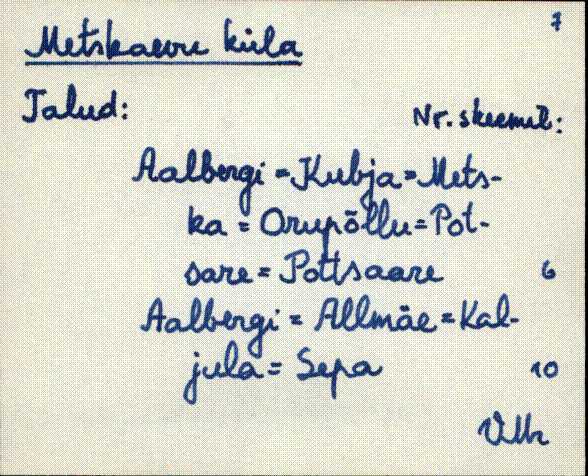 7
Metskaevu küla
Talud:
Nr. skeemil:
Aalbergi = Kubja = Mets-
ka = Orupõllu = Pot-
sare = Pottsaare 6
Aalbergi = Allmäe = Kal-
jula = Sepa 10